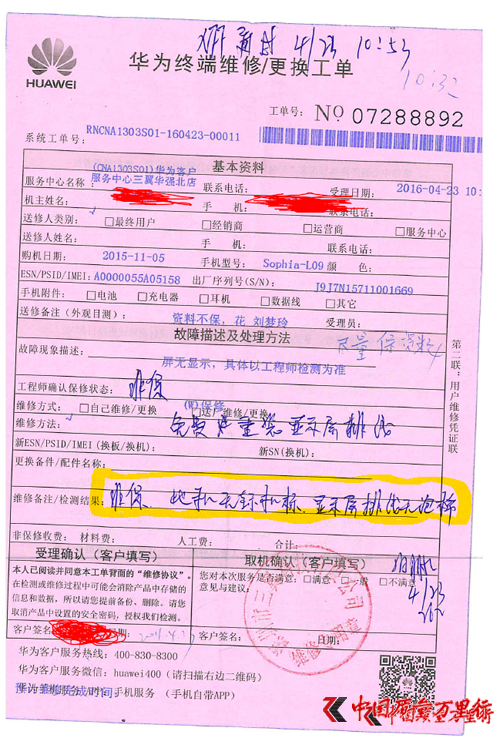 4/23 10:53
HUAWEI
华为终端维修/更换工单
10:32
工单号: NO 07288892
系统工单号: RNCNA1303S01-160423-00011
基本资料
服务中心名称: (CNA1303S01)华为客户服务中心三翼华强北店 联系电话: 受理日期: 2016-04-23 10:
机主姓名: 手 机: 联系电话:
送修人类别: □最终用户 □经销商 □运营商 □服务中心
送修人姓名: 手 机: 联系电话:
购机日期: 2015-11-05 手机型号: Sophia-L09 颜 色:
ESN/PSID/IMEI: A0000055A05158 出厂序列号(S/N): J9J7N15711001669
手机附件: □电池 □充电器 □耳机 □数据线 □其它
送修备注(外观目测): 资料不保,花 刘梦玲 受理员:
故障描述及处理方法
尽量保资料
故障现象描述: 屏无显示,具体以工程师检测为准
工程师确认保修状态: 非保
维修方式: □自己维修/更换 (W)保修 □送厂维修/更换
维修方法: 免费 重装显示屏排线
新ESN/PSID/IMEI(换板/换机): 新SN(换机):
更换备件/配件名称:
维修备注/检测结果: 非保、此手机无拆机痕、显示屏排线无沧桑
非保修收费: 材料费: 人工费: 合计:
第二联:用户维修凭证联
受理确认(客户填写) 取机确认(客户填写)
本人已阅读并同意本工单背面的“维修协议”。
在检测或维修过程中可能会消除产品中存储的
信息和数据,所以请您提前备份、删除。请您
取消产品中设置的安全密码,授权我们检测。
您对本次服务是否满意: □满意 □一般 □不满意
意见与建议:
4/23
客户签名: 客户签名: 日期:
维修专用章
华为客户服务热线: 400-830-8300
华为客户服务微信: huawei400(请扫描右边二维码)
华为手机服务: 手机服务(手机自带APP)
中国质量万里行